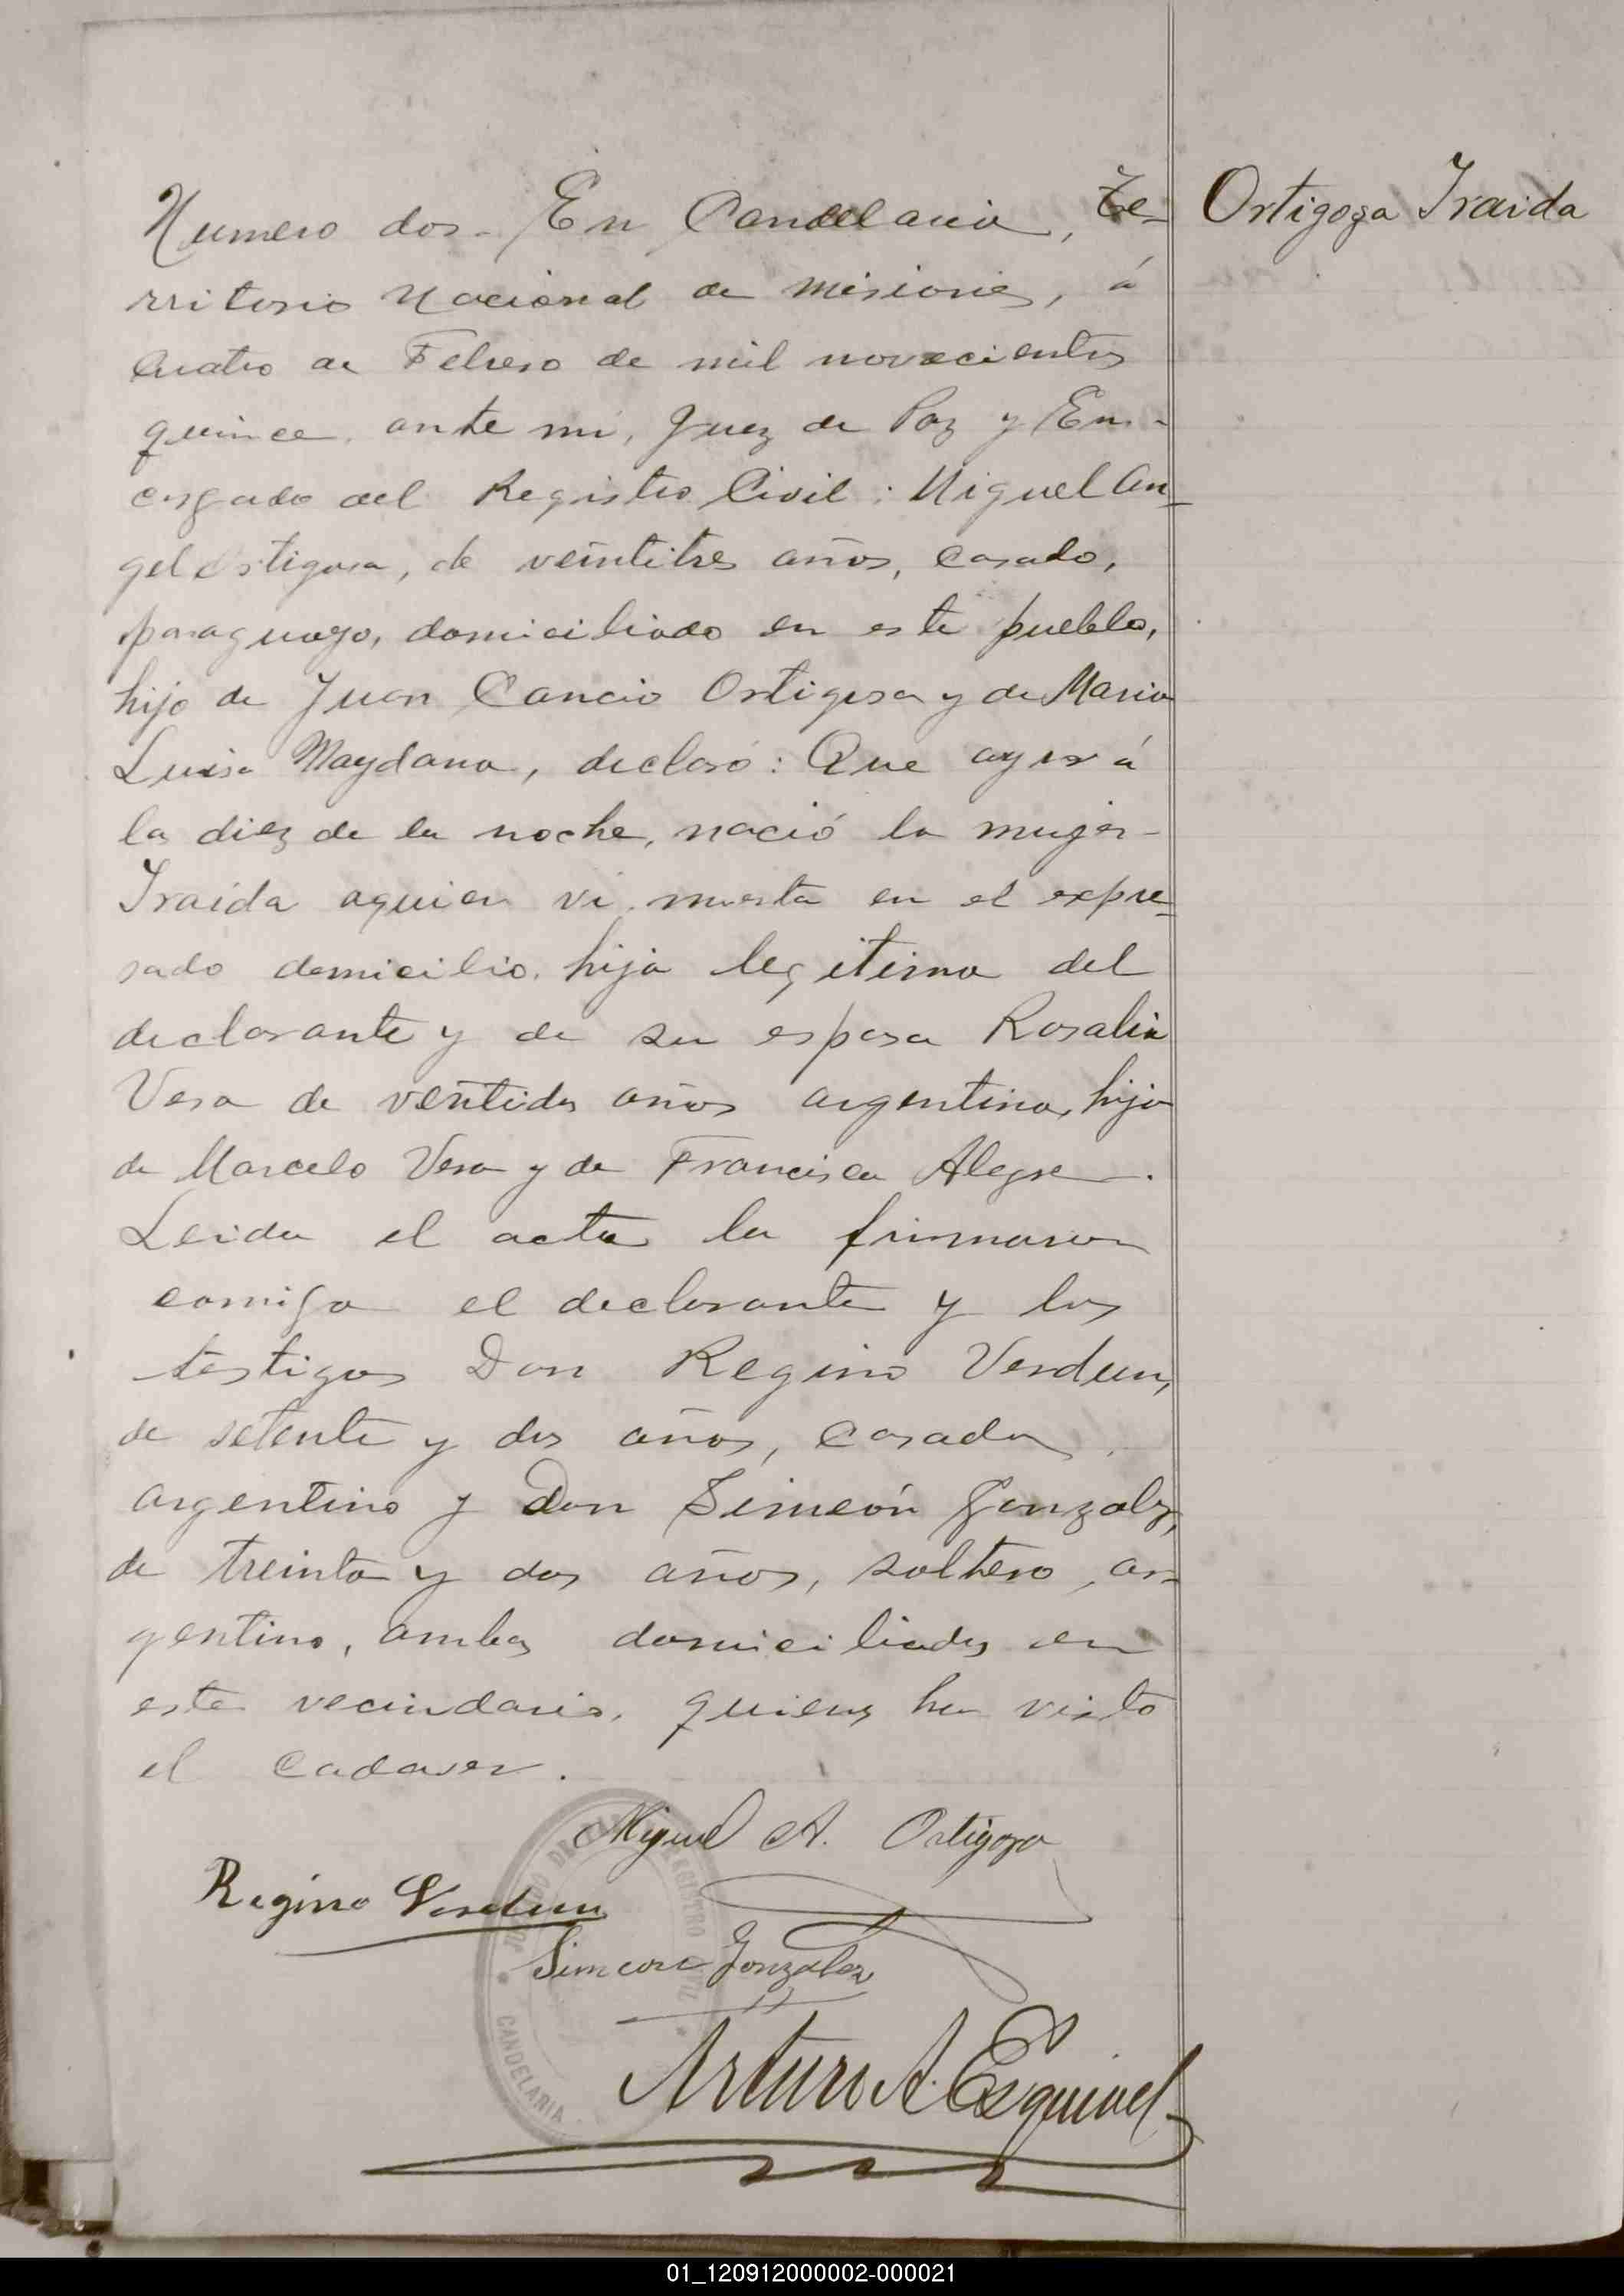 Numero dos - En Candelaria, Te-
Ortigoza Iraida
rritorio Nacional de Misiones, á
cuatro de Febrero de mil novecientos
quince, ante mi, Juez de Paz y En-
cargado del Registro Civil: Miguel An-
gel Ortigosa, de veintitres años, casado,
paraguayo, domiciliado en este pueblo,
hijo de Juan Cancio Ortigosa y de Maria
Luisa Maydana, declaró: Que ayer á
las diez de la noche, nació la mujer
Iraida aquien vi muerta en el expre-
sado domicilio, hija legitima del
declarante y de su esposa Rosalia
Vera de veintidos años argentina, hija
de Marcelo Vera y de Francisca Alegre.
Leida el acta la firmaron
comigo el declarante y los
testigos Don Regino Verdun,
de setenta y dos años, casado,
argentino y Don Simeón Gonzalez,
de treinta y dos años, soltero, ar-
gentino, ambos domiciliados en
este vecindario, quienes han visto
el cadaver.
Miguel A. Ortigoza
Regino Verdun
Simeon Gonzalez
CANDELARIA
Arturo A. Esquivel
01_120912000002-000021